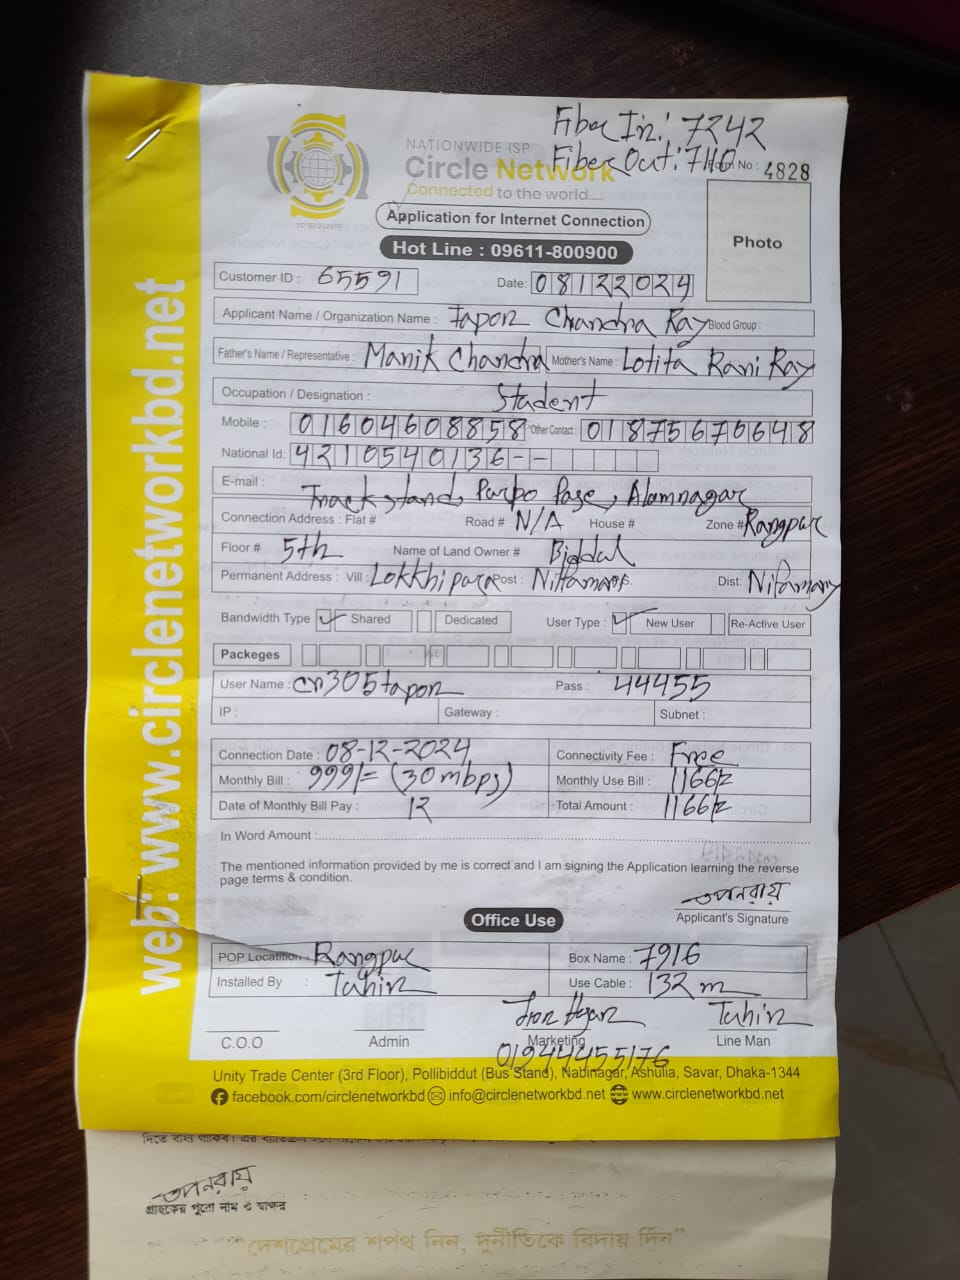 Fiber In: 7242
Fiber Out: 7116
NATIONWIDE ISP
Circle Network
Connected to the world....
Form No : 4828
Application for Internet Connection
Hot Line : 09611-800900
Photo
web: www.circlenetworkbd.net
Customer ID : 65591 Date: 08122024
Applicant Name / Organization Name : Tapon Chandra Ray Blood Group :
Father's Name / Representative : Manik Chandra Mother's Name : Lotita Rani Ray
Occupation / Designation : Student
Mobile : 01604608858 Other Contact : 01875670648
National Id: 4210540136--
E-mail :
Truck stand, Purbo Pase, Alamnagar
Connection Address : Flat # Road # N/A House # Zone # Rangpur
Floor # 5th Name of Land Owner #
Permanent Address : Vill : Lokkhipara Post : Dist:
Bandwidth Type ✓ Shared Dedicated User Type : ✓ New User Re-Active User
Packeges
User Name : cn305tapon Pass : 44455
IP : Gateway : Subnet :
Connection Date : 08-12-2024 Connectivity Fee : Free
Monthly Bill : 999/= (30mbps) Monthly Use Bill : 1166/=
Date of Monthly Bill Pay : 12 Total Amount : 1166/=
In Word Amount :
The mentioned information provided by me is correct and I am signing the Application learning the reverse
page terms & condition.
তপনরায়
Applicant's Signature
Office Use
POP Locatition : Rangpur Box Name : 7916
Installed By : Tuhin Use Cable : 132 m
Tuhin
C.O.O Admin Marketing Line Man
01944455176
Unity Trade Center (3rd Floor), Pollibiddut (Bus Stand), Nabinagar, Ashulia, Savar, Dhaka-1344
facebook.com/circlenetworkbd info@circlenetworkbd.net www.circlenetworkbd.net
তপনরায়
গ্রাহকের পুরো নাম ও স্বাক্ষর
“দেশপ্রেমের শপথ নিন, দুর্নীতিকে বিদায় দিন”